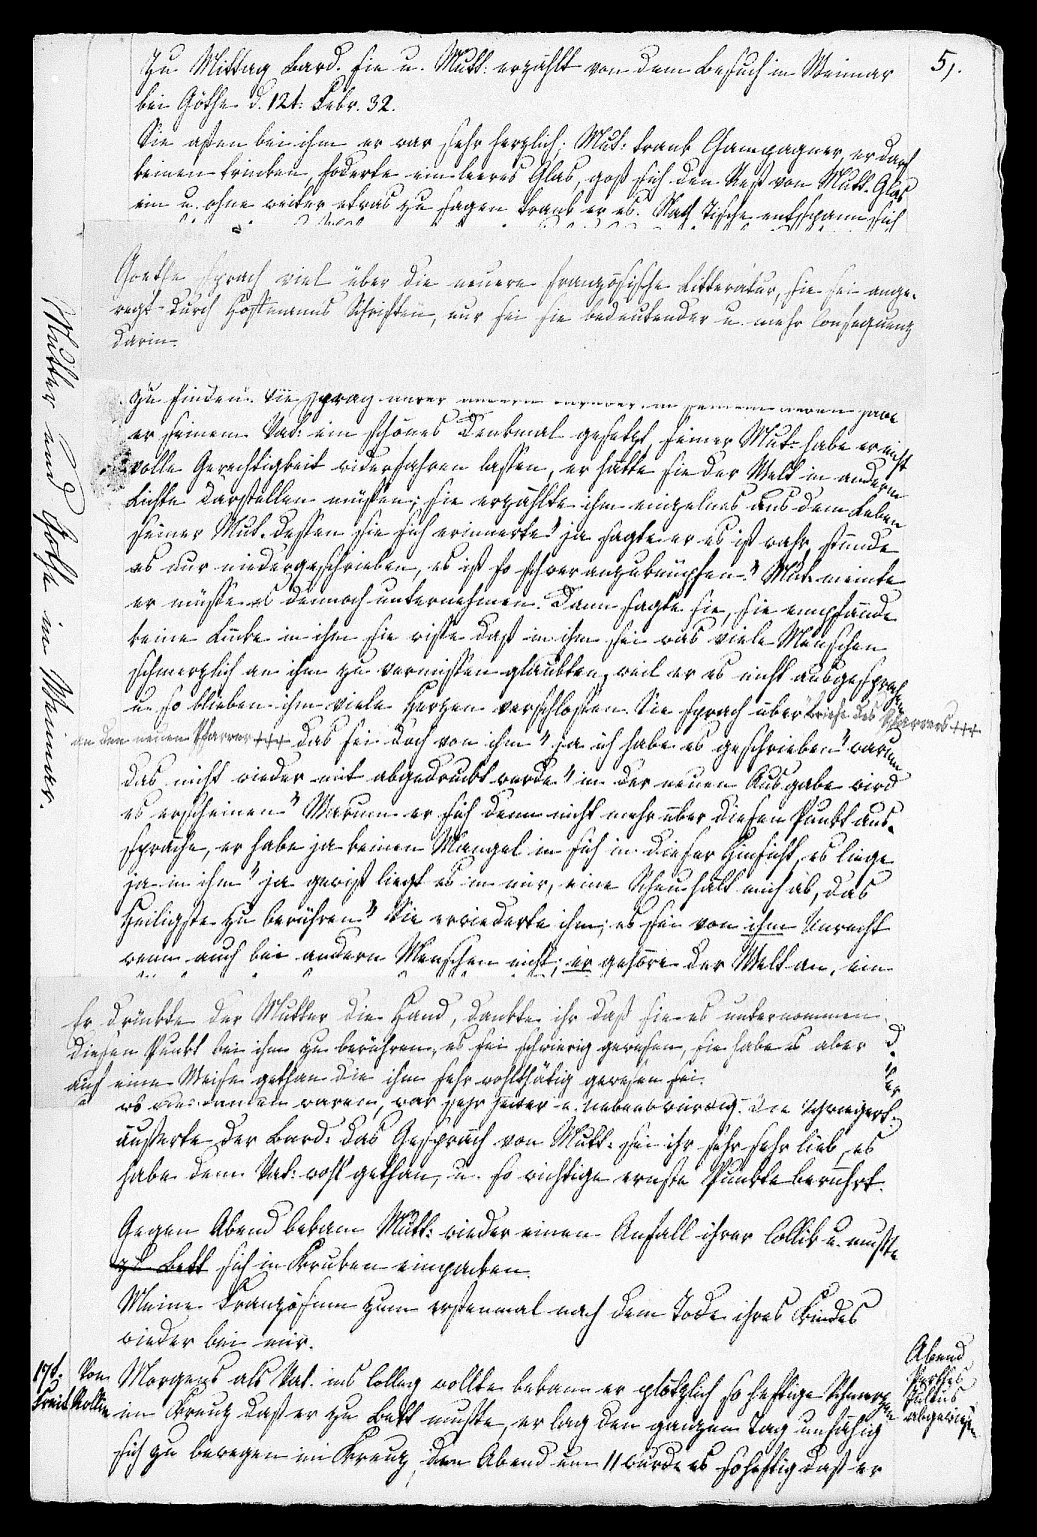 5).
Zu Mittag Bard. sie u. Mutt: erzählt von dem Besuch in Weimar
bei Göthe d. 12t. Febr. 32.
Sie aßen bei ihm er war sehr herzlich; Mut: trank Champagner, er darf
keinen trinken, foderte ein leeres Glas, goß sich den Rest von Mutt. Glas
ein u. ohne weiter etwas zu sagen trank er es. Nach Tische entspann sich
Goethe sprach viel über die neuere französische Litteratur, sie sei ange-
regt durch Hoffmanns Schriften, nur sei sie bedeutender u. mehr Consequenz
darin.
zu finden. Sie sprach
er seinem Vat: ein schönes Denkmal gesetzt, seiner Mut: habe er nicht
volle Gerechtigkeit widerfahren lassen, er hätte sie der Welt in anderm
Lichte darstellen müssen; sie erzählte ihm einzelnes aus dem Leben
seiner Mut. dessen sie sich erinnerte" ja sagte er es ist wahr, stünde
es nur niedergeschrieben, es ist so schwer anzuknüpfen." Mut. meinte
er müßte es dennoch unternehmen. Dann sagte sie, sie empfände
keine Lücke in ihm sie wisse daß in ihm sei was viele Menschen
schmerzlich an ihm zu vermissen glaubten, weil er es nicht ausgesprochen
u. so blieben ihm viele Herzen verschlossen. Sie sprach über Briefe des Pfarrers +++
an den neuen Pfarrer +++ das sei doch von ihm" ja ich habe es geschrieben" warum
das nicht wieder mit abgedruckt werde" in der neuen Ausgabe wird
es erscheinen" Warum er sich denn nicht mehr über diesen Punkt aus-
spräche, er habe ja keinen Mangel in sich in dieser Hinsicht, es liege
ja in ihm" ja gewiß liegt es in mir, eine Scheu hält mich ab, das
Heiligste zu berühren" Sie erwiederte ihm; es sei von ihm Unrecht
wenn auch bei andern Menschen nicht; er gehöre der Welt an, ein
Er drückte der Mutter die Hand, dankte ihr daß sie es unternommen
diesen Punkt bei ihm zu berühren, es sei schwierig gewesen, sie habe es aber
auf eine Weise gethan die ihm sehr wohlthätig gewesen sei.
waren, war sehr heiter u. liebenswürdig. Die Schwiegert:
äußerte der Bard: das Gespräch von Mutt: sei ihr sehr sehr lieb, es
habe dem Vat: wohl gethan, u. so wichtige ernste Punkte berührt.
Gegen Abend bekam Mutt: wieder einen Anfall ihrer Collik u. mußte
zu Bett sich in Kruken einpacken.
Meine Französinn zum erstenmal nach dem Tode ihres Kindes
wieder bei mir.
17t. Von Morgens als Vat. ins Colleg wollte bekam er plötzlich so heftige Schmerzen
Freit im Kreuz daß er zu Bett mußte, er lag den ganzen Tag unfähig
sich zu bewegen im Kreuz, den Abend um 11 wurde es so heftig daß er
Abend
Perthes
abgewiesen
Mutter und Göthe in Weimar.